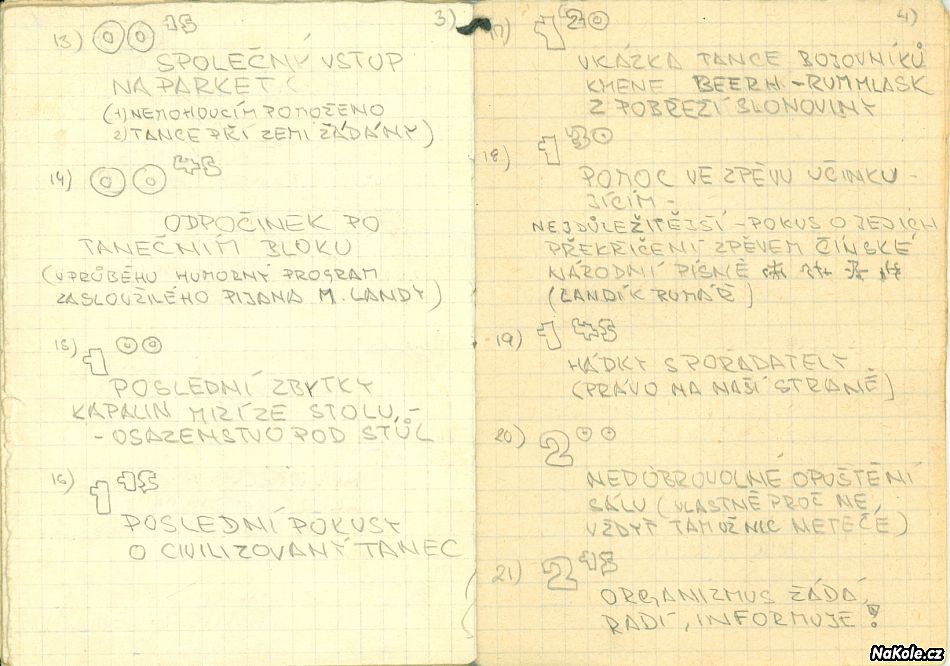 3)
13) 00 15
SPOLEČNÝ VSTUP
NA PARKET
(1) NEMOHOUCÍM POMOŽENO
2) TANCE PŘI ZEMI ŽÁDÁNY)
14) 00 45
ODPOČINEK PO
TANEČNÍM BLOKU
(V PRŮBĚHU HUMORNÝ PROGRAM
ZASLOUŽILÉHO PIJANA M. LANDY)
15) 1 00
POSLEDNÍ ZBYTKY
KAPALIN MIZÍ ZE STOLU, -
- OSAZENSTVO POD STŮL
16) 1 15
POSLEDNÍ POKUSY
O CIVILIZOVANÝ TANEC
4)
17) 1 20
UKÁZKA TANCE BOJOVNÍKŮ
KMENE BEERH.-RUMMLASK
Z POBŘEŽÍ SLONOVINY
18) 1 30
POMOC VE ZPĚVU ÚČINKU-
JÍCÍM -
NEJDŮLEŽITĚJSÍ - POKUS O JEJICH
PŘEKŘIČENÍ ZPĚVEM ČÍNSKÉ
NÁRODNÍ PÍSNĚ
(LANDÍK RUMÁŘ)
19) 1 45
HÁDKY S POŘADATELY
(PRÁVO NA NAŠÍ STRANĚ)
20) 2 00
NEDOBROVOLNÉ OPUŠTĚNÍ
SÁLU (VLASTNĚ PROČ NE,
VŽDYŤ TAM UŽ NIC NETEČE)
21) 2 15
ORGANIZMUS ŽÁDÁ,
RADÍ, INFORMUJE!
NaKole.cz